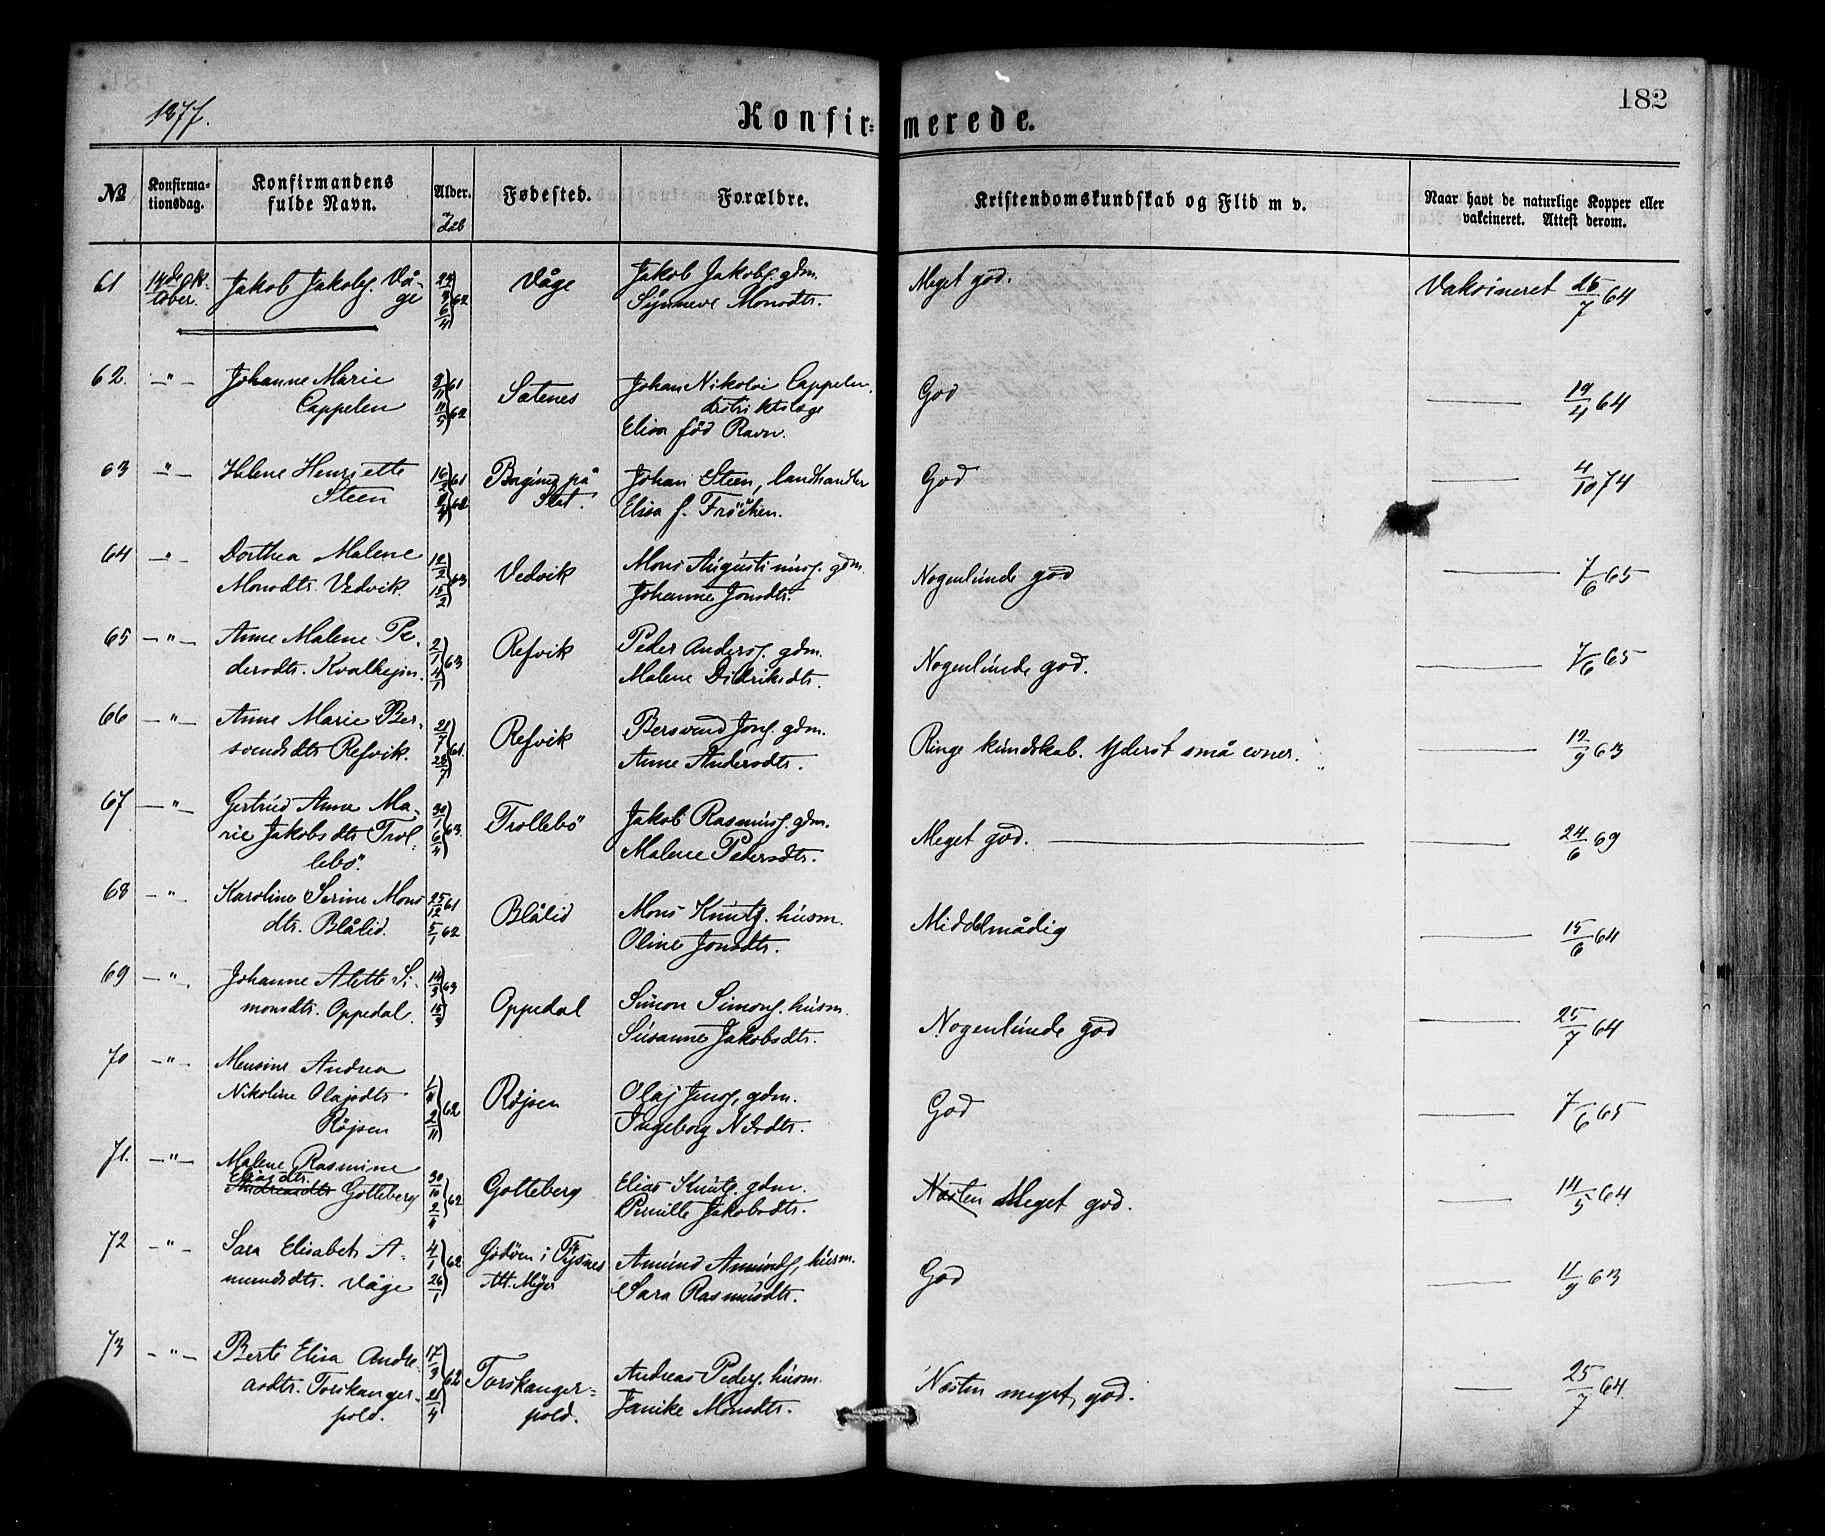 182
1877.
Konfir- merede.
№ Konfirma- tionsdag. Konfirmandens fulde Navn. Alder. Fødested. Forældre. Kristendomskundskab og Flid m v. Naar havt de naturlige Kopper eller vakcineret. Attest derom.
61 14de Ok- Jakob Jakobs. Vå- 62 Våge Jakob Jakobs. gdm. Meget god. Vakcineret 26/7 64
tober. ge 6/4 Synneve Monsdtr.
62. -"- Johanne Marie 61 Satenes Johan Nikolai Cappelen, God — 19/4 64
Cappelen 62 distriktslæge
Elisa fød Ravn.
63 -"- Helene Henriette 61 på Johan Steen, landhandler God — 4/10 74
Steen Slat. Elisa f. Frøchen.
64 -"- Dorthea Malene 12/2 63 Vedvik Mons Augustinus. gdm. Nogenlunde god — 7/6 65
Monsdtr. Vedvik. 15/2 Johanne Jonsdtr.
65 -"- Anne Malene Pe- 2/1 63 Refvik Peder Anders. gdm. Nogenlunde god. — 7/6 65
dersdtr. Kvalhejm. 4/1 Malene Didriksdtr.
66 -"- Anne Marie Ber- 21/7 61. Refvik Bersvend Jons. gdm. Ringe kundskab. Yderst små evner. — 12/9 63
svendsdtr Refvik. 28/7 Anne Andersdtr.
67 -"- Gertrud Anne Ma- 30/1 63. Trollebö Jakob Rasmus. gdm. Meget god. — 24/6 69
rie Jakobsdtr Trol- 6/4 Malene Petersdtr.
lebö.
68 -"- Karoline Serine Mons 25/12 61 Blålid Mons Knuts. husm. Middelmådig — 15/6 64
dtr. Blålid. 5/1 62 Oline Jonsdtr.
69 -"- Johanne Alette Si- 14/3 63 Oppedal Simon Simons. husm. Nogenlunde god — 25/7 64
monsdtr. Oppedal. 15/3 Susanne Jakobsdtr.
70 -"- Mensine Andrea
Nikoline Olafsdtr 1/11 62 Røjsen Olaf Jens., gdm. God — 7/6 65
Røjsen 2/11 Ingeborg Nilsdtr.
71. -"- Malene Rasmine
Eliasdtr.
Andreasdtr Gotteberg 30/10 62 Gotteberg Elias Knuts. gdm. Næsten Meget god. — 14/5 64
Pernille Jakobsdtr.
72 -"- Sara Elisabet A- 4/1 62 Godøen i Tysnes Amund Amunds, husm. God — 11/9 63
mundsdtr. Våge 26/1 Att. Myer Sara Rasmusdtr.
73 -"- Berte Elisa Andre- 17/3 62 Torskanger- Andreas Peders. husm. Næsten meget god. — 25/7 64
asdtr. Torskanger- 21/4 pold. Janike Monsdtr.
pold.